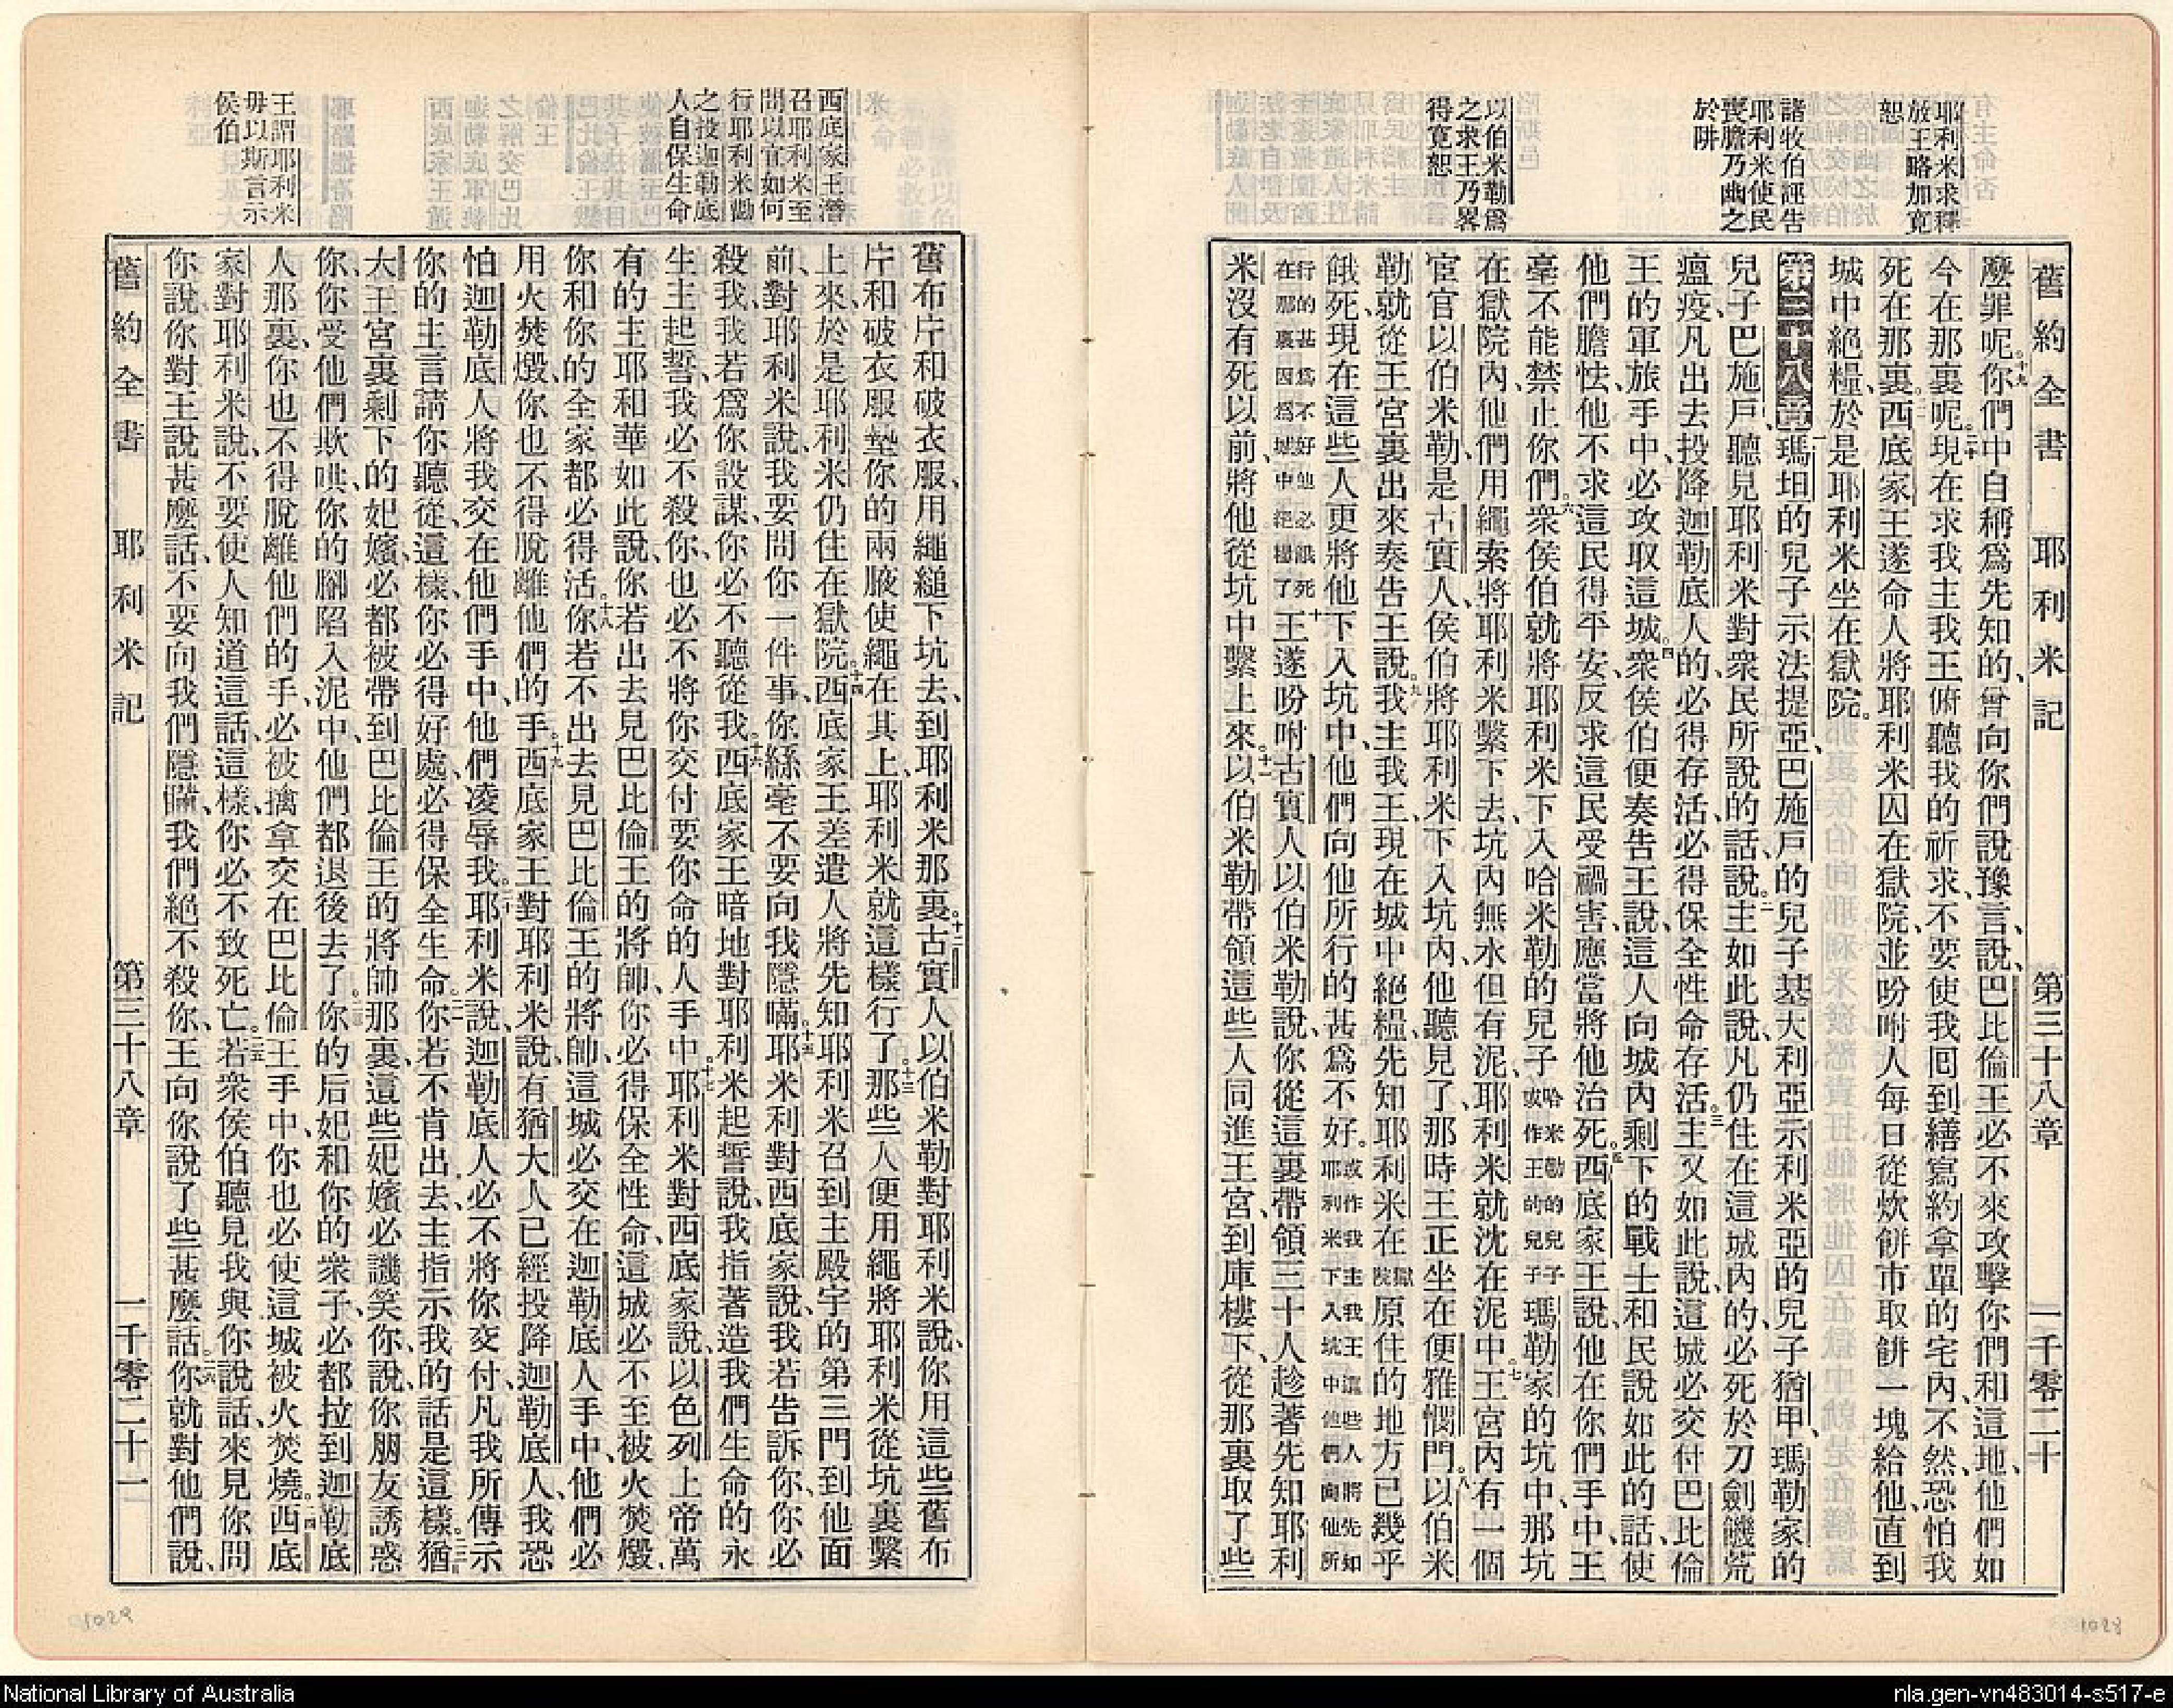 舊約全書 耶利米記 第三十八章 一千零二十
耶利米求釋
放王略加寬
恕
諸牧伯誣告
耶利米使民
喪膽乃幽之
於阱
以伯米勒爲
之求王乃畧
得寬恕
麽罪呢。十九你們中自稱爲先知的、曾向你們說豫言、說、巴比倫王必不來攻擊你們和這地、他們如
今在那裏呢。二十現在求我主我王俯聽我的祈求、不要使我回到繕寫約拿單的宅內、不然、恐怕我
死在那裏。二一西底家王遂命人將耶利米囚在獄院、並吩咐人每日從炊餅市取餅一塊給他、直到
城中絕糧、於是耶利米坐在獄院。
第三十八章 一瑪坦的兒子示法提亞、巴施戶的兒子基大利亞、示利米亞的兒子猶甲、瑪勒家的
兒子巴施戶、聽見耶利米對衆民所說的話說。二主如此說、凡仍住在這城內的、必死於刀劍饑荒
瘟疫、凡出去投降迦勒底人的、必得存活、必得保全性命存活。三主又如此說、這城必交付巴比倫
王的軍旅手中、必攻取這城。四衆侯伯便奏告王說、這人向城內剩下的戰士和民說如此的話、使
他們膽怯、他不求這民得平安、反求這民受禍害、應當將他治死。五西底家王說、他在你們手中、王
毫不能禁止你們。六衆侯伯就將耶利米下入哈米勒的兒子哈米勒的兒子或作王的兒子瑪勒家的坑中、那坑
在獄院內、他們用繩索將耶利米繫下去、坑內無水但有泥、耶利米就沈在泥中。七王宮內有一個
宦官以伯米勒、是古實人、侯伯將耶利米下入坑內、他聽見了、那時王正坐在便雅憫門。八以伯米
勒就從王宮裏出來奏告王說。九我主我王、現在城中絕糧、先知耶利米在獄院原住的地方已幾乎
餓死、現在這些人更將他下入坑中、他們向他所行的甚爲不好。或作我主我王這些人將先知耶利米下入坑中他們向他所
行的甚爲不好他必餓死在那裏因爲城中絕糧了十王遂吩咐古實人以伯米勒說、你從這裏帶領三十人、趁著先知耶利
米沒有死以前、將他從坑中繫上來。十一以伯米勒帶領這些人同進王宮、到庫樓下、從那裏取了些
西底家王潛
召耶利米至
問以宜如何
行耶利米勸
之投迦勒底
人自保生命
王謂耶利米
毋以斯言示
侯伯
舊布斤和破衣服、用繩縋下坑去、到耶利米那裏。十二古實人以伯米勒對耶利米說、你用這些舊布
斤和破衣服墊你的兩腋使繩在其上、耶利米就這樣行了。十三那些人便用繩將耶利米從坑裏繫
上來、於是耶利米仍住在獄院。十四西底家王差遣人將先知耶利米召到主殿宇的第三門到他面
前、對耶利米說、我要問你一件事、你絲毫不要向我隱瞞。十五耶米利對西底家說、我若告訴你、你必
殺我、我若爲你設謀、你必不聽從我。十六西底家王暗地對耶利米起誓說、我指著造我們生命的永
生主起誓、我必不殺你、也必不將你交付要你命的人手中。十七耶利米對西底家說、以色列上帝萬
有的主耶和華如此說、你若出去見巴比倫王的將帥、你必得保全性命、這城必不至被火焚燬、
你和你的全家都必得活。十八你若不出去見巴比倫王的將帥、這城必交在迦勒底人手中、他們必
用火焚燬、你也不得脫離他們的手。十九西底家王對耶利米說、有猶大人已經投降迦勒底人、我恐
怕迦勒底人將我交在他們手中、他們凌辱我。二十耶利米說、迦勒底人必不將你交付、凡我所傳示
你的主言請你聽從、這樣、你必得好處、必得保全生命。二一你若不肯出去、主指示我的話是這樣。二二猶
大王宮裏剩下的妃嬪、必都被帶到巴比倫王的將帥那裏、這些妃嬪必譏笑你、說、你朋友誘惑
你、你受他們欺哄、你的腳陷入泥中、他們都退後去了。二三你的后妃和你的衆子、必都拉到迦勒底
人那裏、你也不得脫離他們的手、必被擒拿交在巴比倫王手中、你也必使這城被火焚燒。二四西底
家對耶利米說、不要使人知道這話、這樣、你必不致死亡。二五若衆侯伯聽見我與你說話、來見你問
你說、你對王說甚麽話、不要向我們隱瞞、我們絕不殺你、王向你說了些甚麽話。二六你就對他們說、
舊約全書 耶利米記 第三十八章 一千零二十一
1029
1028
National Library of Australia
nla.gen-vn483014-s517-e